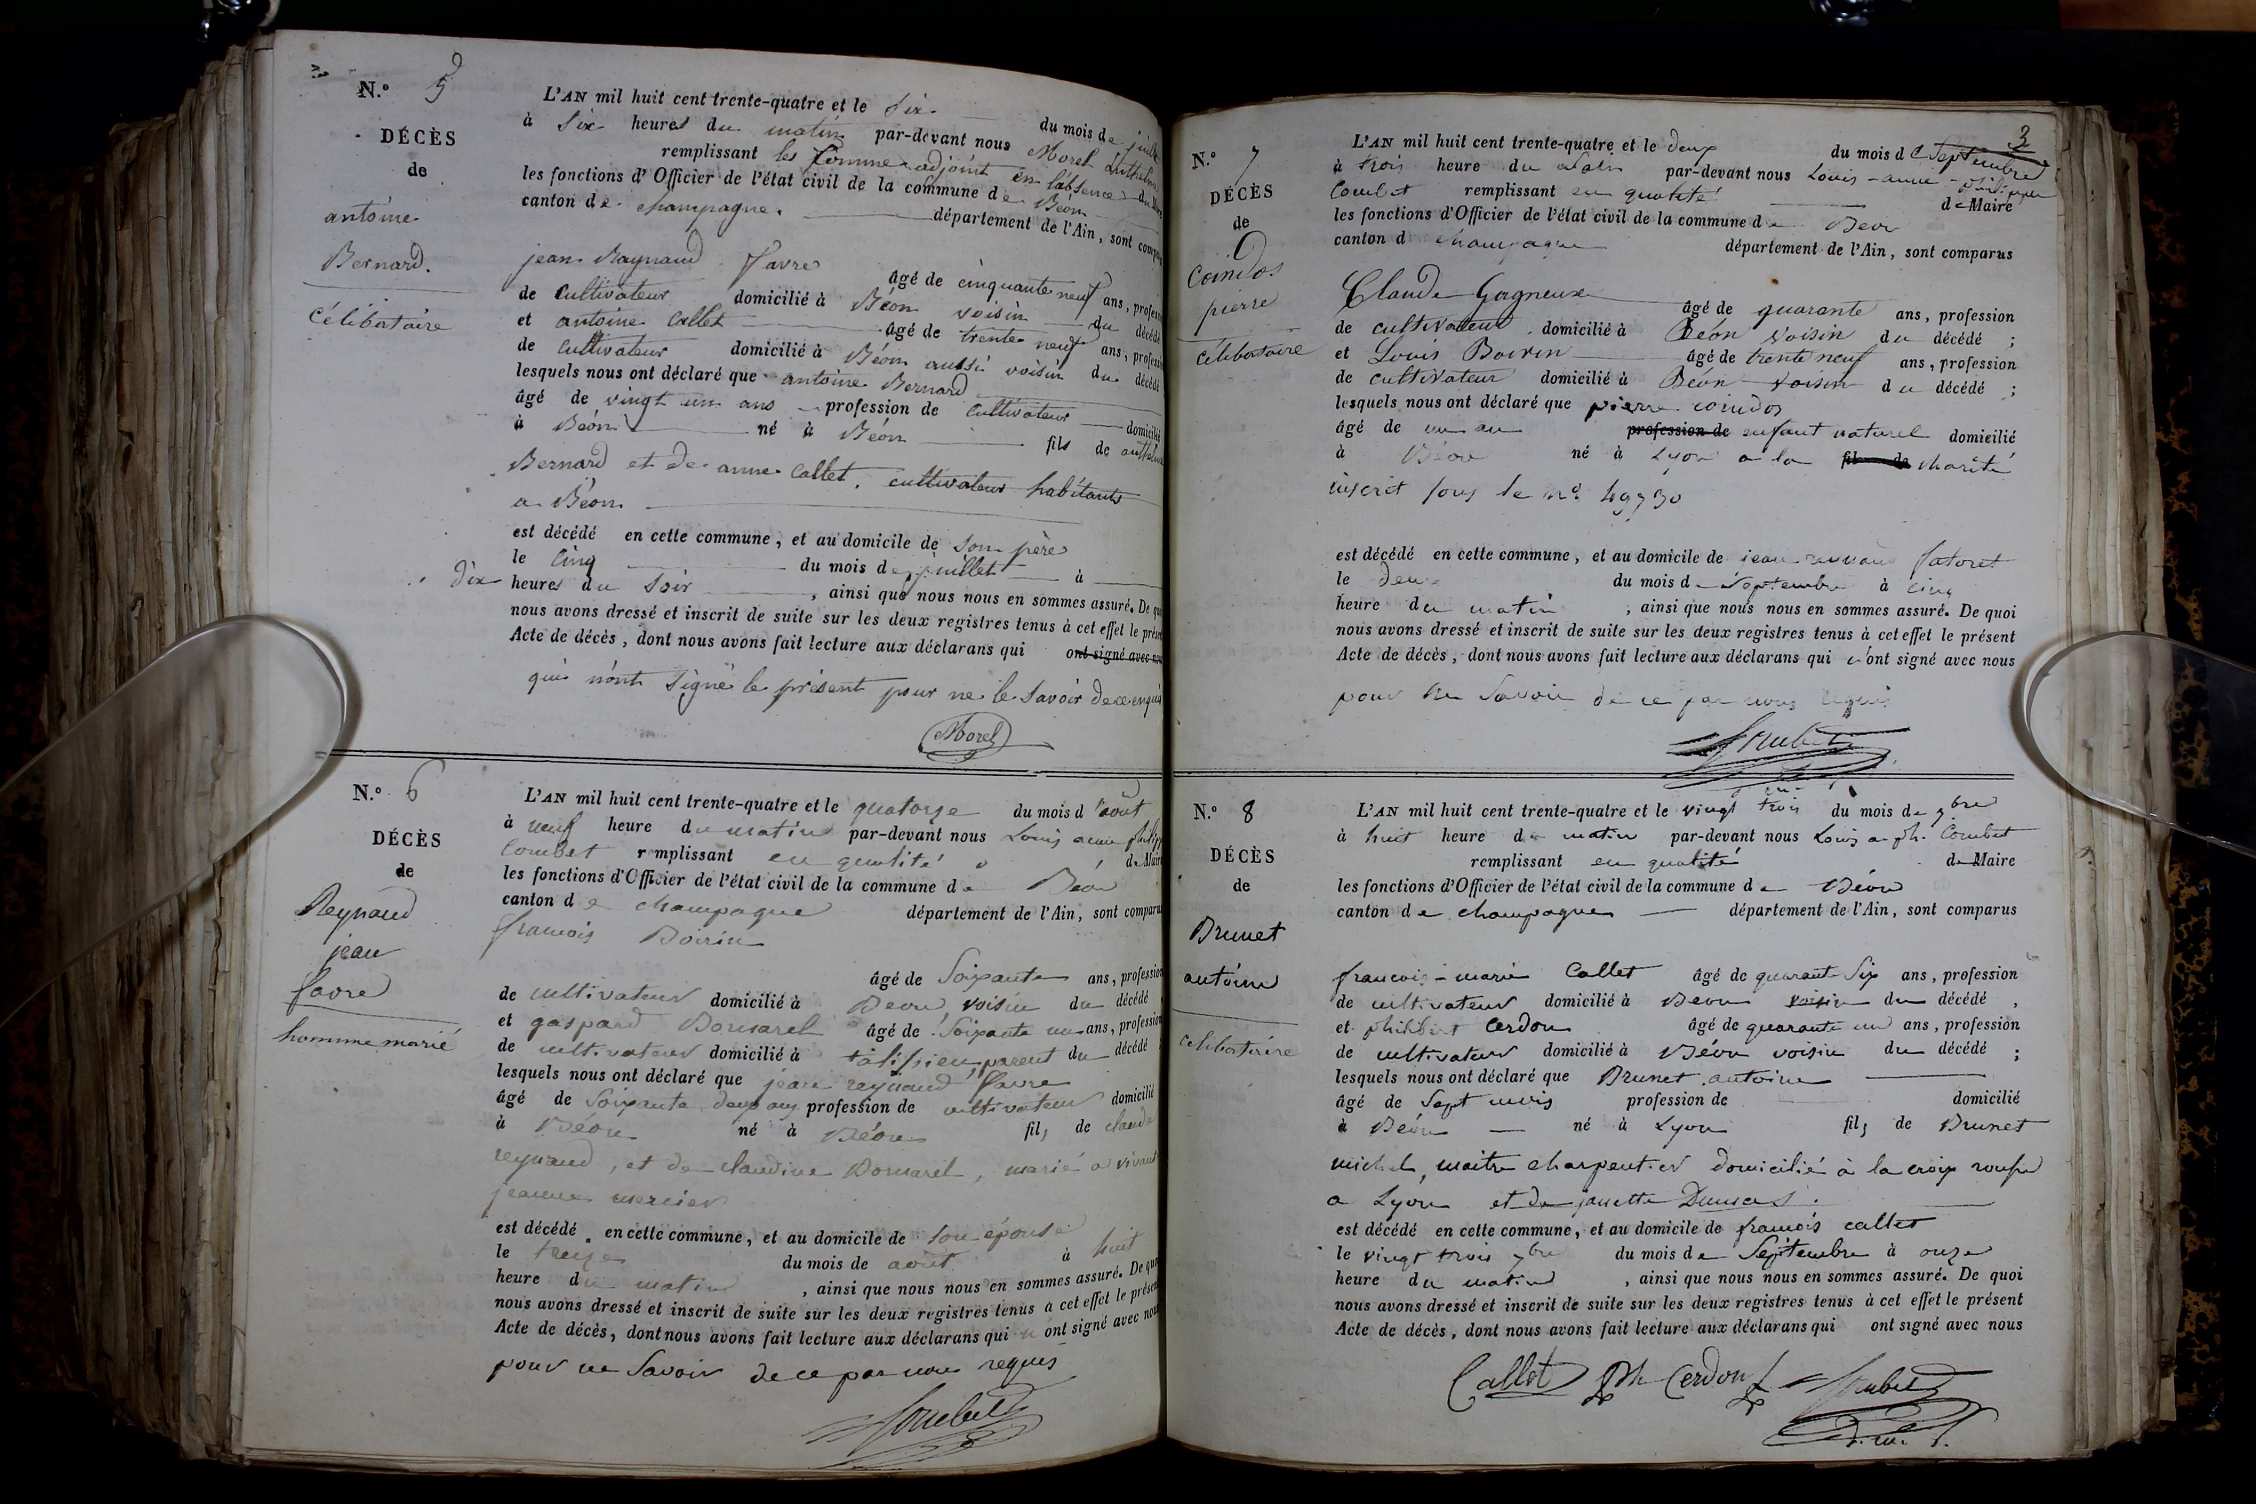 N.º 5
DÉCÈS
de
antoine
Bernard.
célibataire
L'AN mil huit cent trente-quatre et le six du mois de juillet
à six heures du matin par-devant nous Morel Anthelme
remplissant les comme adjoint en l'absence du Maire
les fonctions d'Officier de l'état civil de la commune de Béon
canton de champagne. département de l'Ain, sont comparus
jean Raynaud favre âgé de cinquante neuf ans, profession
de cultivateur domicilié à Béon voisin du décédé
et antoine Callet âgé de trente neuf ans, profession
de cultivateur domicilié à Béon aussi voisin du décédé
lesquels nous ont déclaré que antoine Bernard
âgé de vingt un ans profession de cultivateur domicilié
à Béon né à Béon fils de anthelme
Bernard et de anne Callet, cultivateur habitants
a Béon
est décédé en cette commune, et au domicile de son père
le cinq du mois de juillet à
dix heures du soir, ainsi que nous nous en sommes assuré. De quoi
nous avons dressé et inscrit de suite sur les deux registres tenus à cet effet le présent
Acte de décès, dont nous avons fait lecture aux déclarans qui ont signé avec nous
qui n'ont signé le présent pour ne le savoir de ce enquis
Morel
N.º 6
DÉCÈS
de
Reynaud
jean
favre
homme marié
L'AN mil huit cent trente-quatre et le quatorze du mois d'août
à neuf heure du matin par-devant nous Louis anne philippe
Combet remplissant en qualité de Maire
les fonctions d'Officier de l'état civil de la commune de Béon
canton de champagne département de l'Ain, sont comparus
francois Boirin
âgé de Soixante ans, profession
de cultivateur domicilié à Beon voisin du décédé
et gaspard Bornarel âgé de Soixante un ans, profession
de cultivateur domicilié à talissieu parent du décédé
lesquels nous ont déclaré que jean reynaud favre
âgé de Soixante deux ans profession de cultivateur domicilié
à Béon né à Béon fils de claude
reynaud, et de claudine Bornarel, marié a vivant
jeanne mercier
est décédé en cette commune, et au domicile de son épouse
le treize du mois de août à huit
heure du matin, ainsi que nous nous en sommes assuré. De quoi
nous avons dressé et inscrit de suite sur les deux registres tenus à cet effet le présent
Acte de décès, dont nous avons fait lecture aux déclarans qui n'ont signé avec nous
pour ne Savoir de ce par nous requis
Combet
3
N.º 7
DÉCÈS
de
Coindos
pierre
célibataire
L'AN mil huit cent trente-quatre et le deux du mois de Septembre
à trois heure du par-devant nous Louis-anne-philippe
Combet remplissant en qualité de Maire
les fonctions d'Officier de l'état civil de la commune de Beon
canton d champagne département de l'Ain, sont comparus
Claude Gagneux âgé de quarante ans, profession
de cultivateur domicilié à Béon voisin du décédé ;
et Louis Boirin âgé de trente neuf ans, profession
de cultivateur domicilié à Béon voisin du décédé ;
lesquels nous ont déclaré que pierre coindos
âgé de un an profession de enfant naturel domicilié
à Béon né à Lyon a la fils de charité
inscrit sous le nº 49730
est décédé en cette commune, et au domicile de jean favoret
le deux du mois de Septembre à cinq
heure du matin, ainsi que nous nous en sommes assuré. De quoi
nous avons dressé et inscrit de suite sur les deux registres tenus à cet effet le présent
Acte de décès, dont nous avons fait lecture aux déclarans qui n'ont signé avec nous
pour ne Savoir de ce par nous requis
Combet
N.º 8
DÉCÈS
de
Brunet
antoine
celibataire
L'AN mil huit cent trente-quatre et le vingt trois du mois de 7bre
à huit heure du matin par-devant nous Louis a. ph. Combet
remplissant en qualité de Maire
les fonctions d'Officier de l'état civil de la commune de Béon
canton de champagne département de l'Ain, sont comparus
francois-marie Callet âgé de quarante Six ans, profession
de cultivateur domicilié à Beon voisin du décédé,
et philibert Cerdon âgé de quarante un ans, profession
de cultivateur domicilié à Béon voisin du décédé ;
lesquels nous ont déclaré que Brunet antoine
âgé de Sept mois profession de domicilié
à Béon né à Lyon fils de Brunet
michel, maitre charpentier domicilié à la croix rousse
a Lyon et de janette Dumas.
est décédé en cette commune, et au domicile de francois callet
le vingt trois 7bre du mois de Septembre à onze
heure du matin, ainsi que nous nous en sommes assuré. De quoi
nous avons dressé et inscrit de suite sur les deux registres tenus à cet effet le présent
Acte de décès, dont nous avons fait lecture aux déclarans qui ont signé avec nous
Callet Ph Cerdon Combet